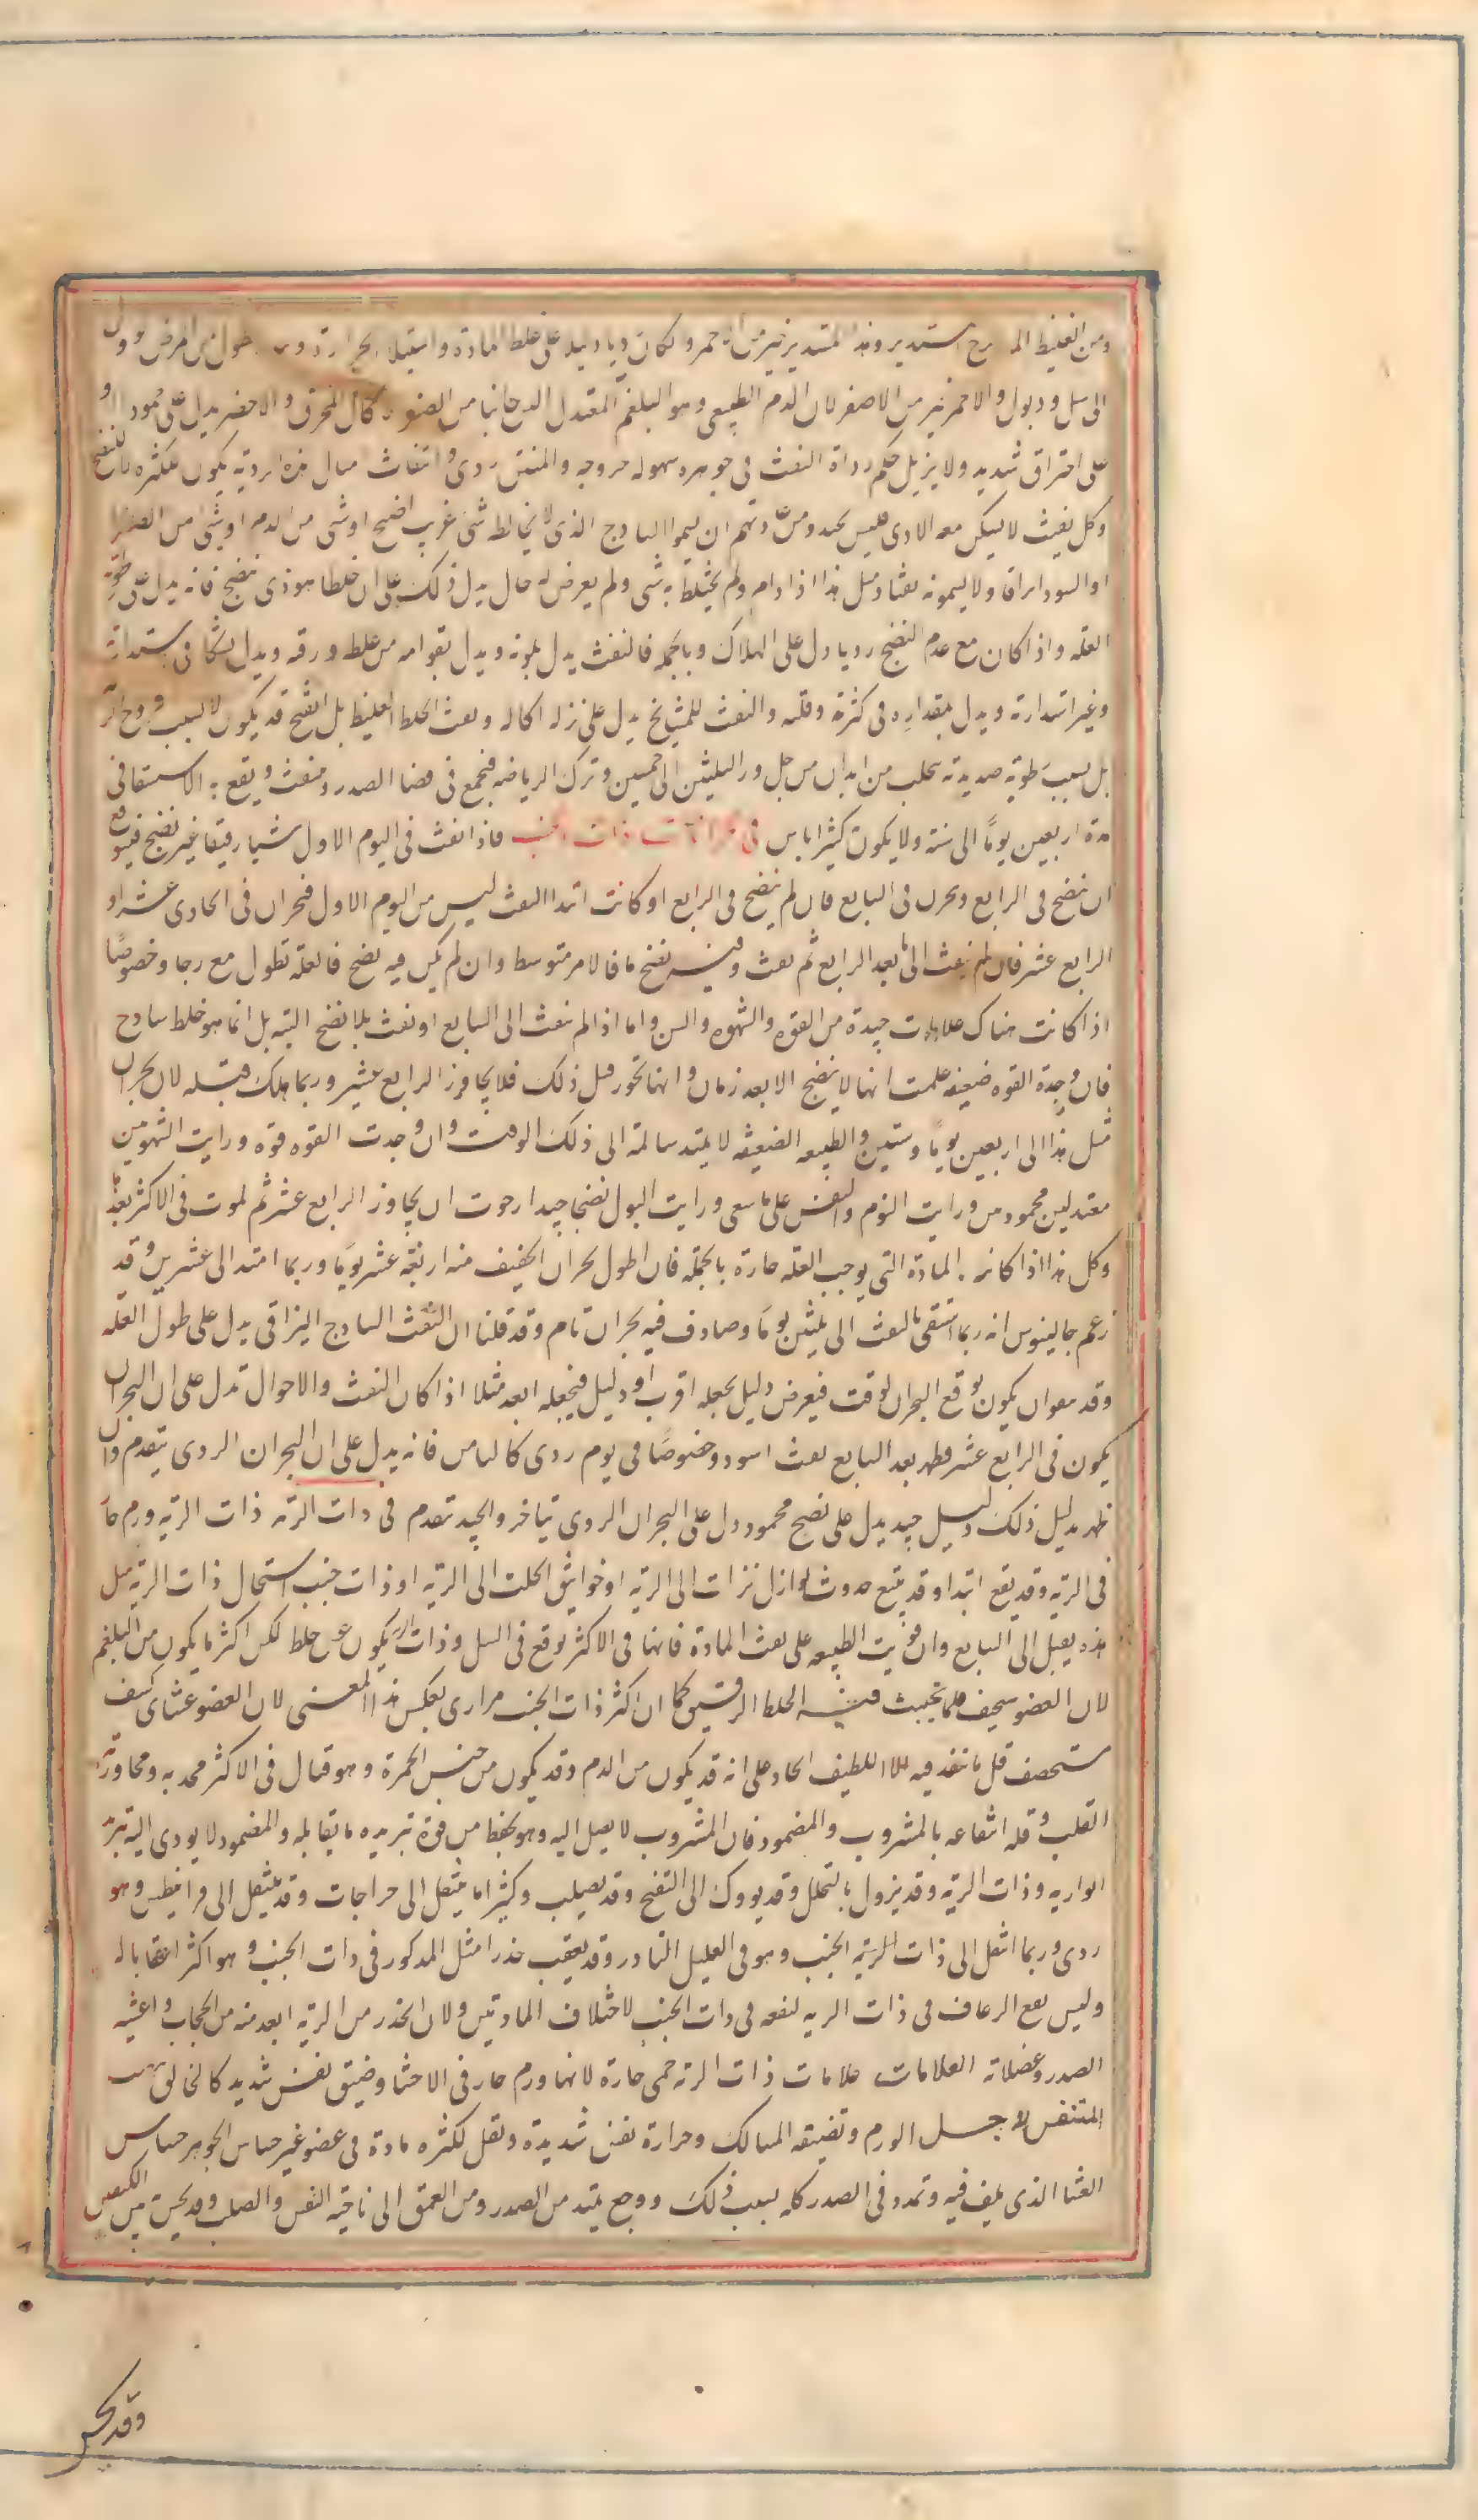 ومن الغليظ المدرج مستدير وهذا المستدير خير من انه حمر وكان رديا دليلا على غلط المادة واستيلا الحرارة وربما طول من المرض وول
الى سل وذبول والاحمر خير من الاصفر لان الدم الطبيعى وهو البلغم المعتدل الدخانيا من الصفو كال المحرق والاخضر يدل على جمود او
على احتراق شديد ولا يزيل حكم رداة النفث فى جوهره سهوله خروجه والمنتن ردئ وانتفاث مثال هذه الرديه يكون للكثره لا للنضج
وكل نفث لا يسكن معه الاذى فليس بجيد ومن عادتهم ان يسموا الساذج الذى لا يخالطه شئ غريب اضح او شئ من الدم او شئ من الصفرا
او السودا براقا ولا يسمونه نفثا ومثل هذا اذا دام ولم يختلط به شى ولم يعرض له حال يدل ذلك على ان خلطا هو ذى نضج فانه يدل على طول
العله واذا كان مع عدم النضج رديا دل على الهلاك وبالجمله فالنفث يدل بلونه ويدل بقوامه من غلظ ورقه ويدل بشكله فى استدارته
وغير استدارته ويدل بمقداره فى كثرته وقلته والنفث للمشايخ يدل على نزله اكاله ونفث الخلط الغليظ بل القيح قد يكون لا لسبب قروح الرئة
بل بسبب رطوبه صديديه تتحلب من ابدان من جل ورا الثلثين الى خمسين وترك الرياضه فيجتمع فى فضا الصدر وينفث ويقع به الاستنقا فى
مدة اربعين يوما الى ستة ولا يكون كثيرا باس فى بحرانات ذات الجنب فاذا نفث فى اليوم الاول شيا رقيقا غير نضج فيتوقع
ان نضج فى الرابع وبحرن فى السابع فان لم ينضج فى الرابع او كانت ابتدا النفث ليس من اليوم الاول فبحران فى الحادى عشر او
الرابع عشر فان لم ينفث الى ما بعد الرابع ثم نفث وفيه نضج ما فالامر متوسط وان لم يكن فيه نضج فالعله تطول مع رجا وخصوصًا
اذا كانت هناك علامات جيدة من القوه والشهوه والسن واما اذا لم ينفث الى السابع او نفث بلا نضج البته بل انما هو خلط ساذج
فان وجدة القوه ضعيفه علمت انها لا ينضج الا بعد زمان وانها تخور قبل ذلك فلا يجاوز الرابع عشر وربما هلك قبله لان بحران
مثل هذا الى اربعين يوما وستين والطبيعه الضعيفه لا يمتد سالمة الى ذلك الوقت وان وجدت القوه قوه ورايت الشهوتين
معتدلين محمودين ورايت النوم والنفس على ما ينبغى ورايت البول نضجا جيدا رجوت ان يجاوز الرابع عشر ثم لموت فى الاكثر بعدها
وكل هذا اذا كانت المادة التى يوجب العله حارة بالجمله فان اطول بحران الخفيف منه اربعه عشر يوما وربما امتد الى عشرين وقد
زعم جالينوس انه ربما استنقى بالنفث الى ثلثين يوما وصادف فيه بحران تام وقد قلنا ان النفث الساذج البزاقى يدل على طول العله
وقد معوان يكون توقع البحران لوقت فيعرض دليل يجعله اقرب او دليل فيجعله ابعد مثلا اذا كان النفث والاحوال تدل على ان البحران
يكون فى الرابع عشر فظهر بعد السابع نفث اسود وخصوصًا فى يوم ردى كالثامن فانه يدل على ان البحران الردى يتقدم وان
ظهر بدليل ذلك دليل جيد يدل على نضج محمود دل على البحران الردى يتاخر والجيد تقدم فى ذات الرئه ذات الريه ورم حار
فى الريه وقد يقع ابتدا وقد يتبع حدوث نوازل نزلت الى الريه او خوانيق انحلت الى الريه او ذات جنب استحال ذات الريه مثل
هذه يقتل الى السابع وان قويت الطبيعه على نفث المادة فانها فى الاكثر توقع فى السل وذات الريه يكون عن خلط لكن اكثر ما يكون من البلغم
لان العضو سخيف قلما يحتبث فيه الخلط الرقيق كما ان اكثر ذات الجنب مرارى بعكس هذا المعنى لان العضو غشائى كثيف
مستحصف قل ما ينفذ فيه الا اللطيف الحاد على انه قد يكون من الدم وقد يكون من جنس الحمرة وهو قتال فى الاكثر بحده ومجاورته
القلب وقله انتفاعه بالمشروب والمضمود فان المشروب لا يصل اليه وهو يحفظ من قوة تبريده ما يقابله والمضمود لا يودى اليه تبريد
الواريه وذات الريه وقد يزول بالتحلل وقد يوول الى التقيح وقد يصلب وكثيرا ما ينتقل الى خراجات وقد ينتقل الى قرانيطس وهو
ردى وربما انتقل الى ذات الريه الجنب وهو فى القليل النادر وقد يعقب خدرا مثل المذكور فى ذات الجنب وهو اكثر اعقابا له
وليس نفع الرعاف فى ذات الريه لنفعه فى ذات الجنب لاختلاف المادتين ولان الجذب من الريه ابعد منه من الحجاب واغشيه
الصدر وعضلاته العلامات علامات ذات الرئه حمى حارة لانها ورم حار فى الاحشا وضيق نفس شديد كالخانق يهب
المتنفس لاجل الورم وتضيقه المسالك وحرارة نفس شديدة وثقل لكثره مادة فى عضو غير حساس الجوهر حساس
الغشا الذى يلف فيه وتمدد فى الصدر كله بسبب ذلك ووجع يمتد من الصدر ومن العمق الى ناحيه القس والصلب وقد يحس بين الكتفين
وقد يحس